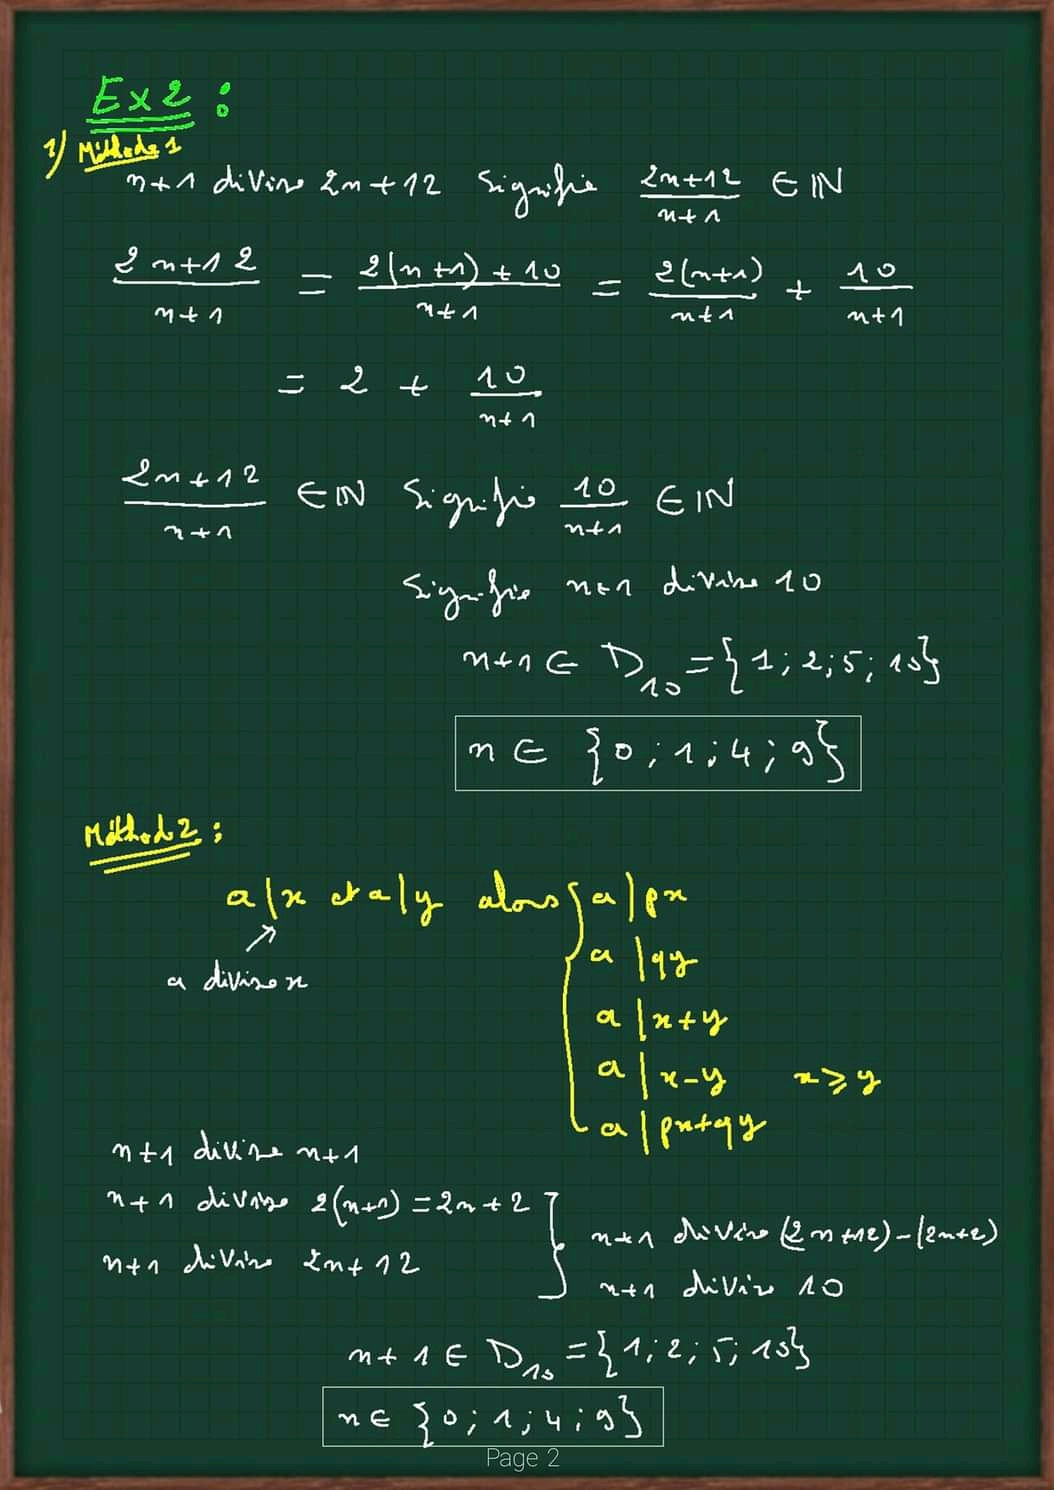 Ex 2 :
1) Méthode 1
n+1 divise 2n+12 signifie (2n+12)/(n+1) ∈ IN
(2n+12)/(n+1) = (2(n+1)+10)/(n+1) = 2(n+1)/(n+1) + 10/(n+1)
= 2 + 10/(n+1)
(2n+12)/(n+1) ∈ IN signifie 10/(n+1) ∈ IN
signifie n+1 divise 10
n+1 ∈ D₁₀ = {1; 2; 5; 10}
n ∈ {0; 1; 4; 9}
Méthode 2 :
a|x et a|y alors { a|px
a divise x
a|qy
a|x+y
a|x-y x⩾y
a|px+qy
n+1 divise n+1
n+1 divise 2(n+1) = 2n+2
n+1 divise 2n+12
n+1 divise (2n+12)-(2n+2)
n+1 divise 10
n+1 ∈ D₁₀ = {1; 2; 5; 10}
n ∈ {0; 1; 4; 9}
Page 2